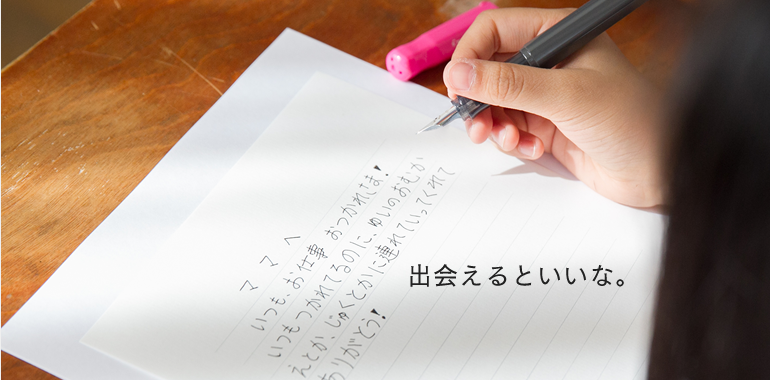 ママへ
いつも、お仕事 おつかれさま!
いつもつかれてるのに、ゆいのおむか
えとか、じゅくとかに連れていってくれて
ありがとう!
出会えるといいな。